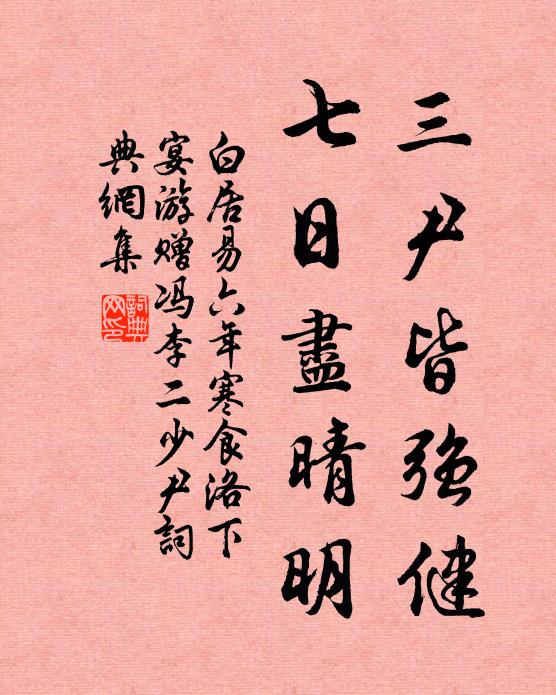 三尹皆強健
七日盡晴明
白居易六年寒食洛下
宴游赠冯李二少尹詞
典網集
詞典網印